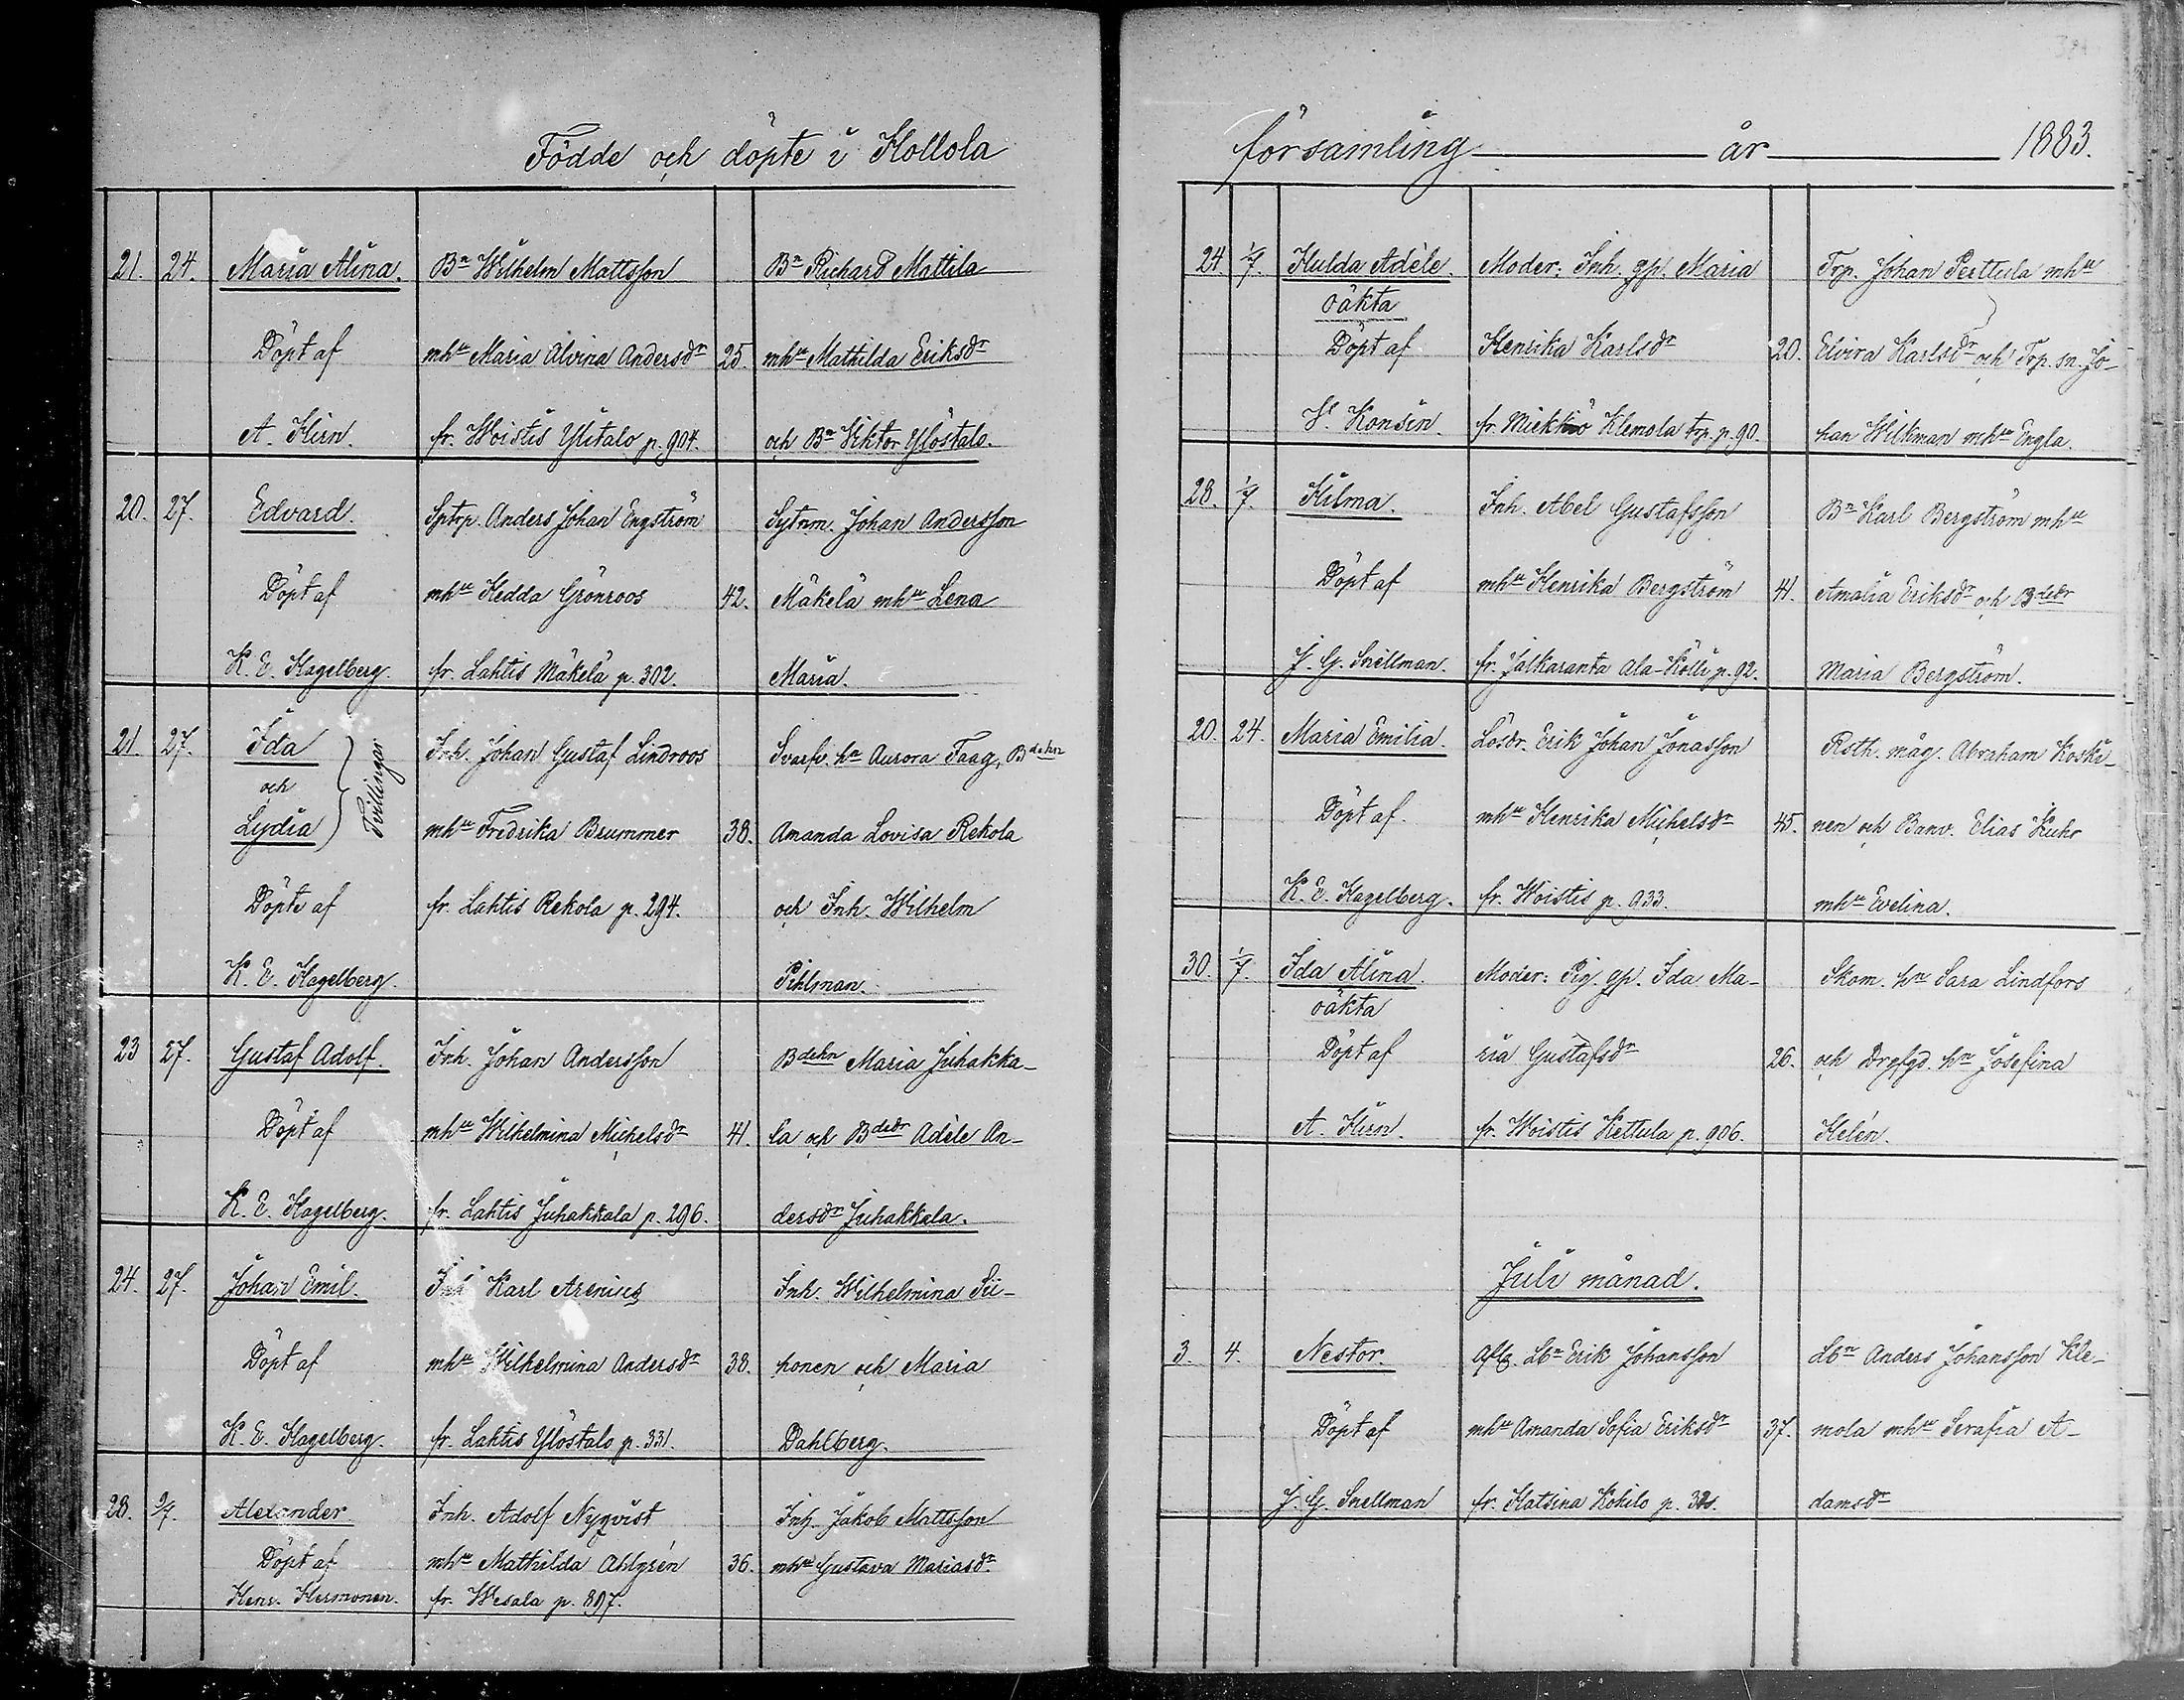 Födde och döpte i Hollola
21. 24. Maria Alina. Bn Wilhelm Mattsson Bn Richard Mattila
Döpt af mhu Maria Alvina Andersdr 25. mhu Mathilda Eriksdr
A. Hirn. fr. Woistis Ylitalo p. 904. och Bn Viktor Yliöstalo.
20. 27. Edvard. Sptrp. Anders Johan Engström Sytnm. Johan Andersson
Döpt af mhu Hedda Grönroos 42. Mäkelä mhu Lena
K. E. Hagelberg. fr. Lahtis Mäkelä p. 302. Maria.
21. 27. Ida Inh. Johan Gustaf Lindroos Svarfv. hn Aurora Taag, Bdehn
och
Lydia Tvillingar mhu Fredrika Brummer 38. Amanda Lovisa Rekola
Döpte af fr. Lahtis Rekola p. 294. och Inh. Wilhelm
K. E. Hagelberg. Pihlman.
23 27. Gustaf Adolf. Inh. Johan Andersson Bdehn Maria Juhakka-
Döpt af mhu Wilhelmina Michelsdr 41. la och Bdedr Adèle An-
K. E. Hagelberg. fr. Lahtis Juhakkala p. 296. dersdr Juhakkala.
24. 27. Johan Emil. Inh Karl Arenius Inh. Wilhelmina Sii-
Döpt af mhu Wilhelmina Andersdr 38. honen och Maria
K. E. Hagelberg. fr. Lahtis Ylöstalo p. 331. Dahlberg.
28. 2/7. Alexander Inh. Adolf Nyqvist Inh. Jakob Mattsson
Döpt af mhu Mathilda Ahlgrén 36. mhu Gustava Mariasdr.
Henr. Hermonen. fr. Wesala p. 897.
församling år 1883.
24 1/7. Hulda Adèle. Moder: Inh. gp. Maria Trp. Johan Perttula mhu
oäkta
Döpt af Henrika Karlsdr 20. Elvira Karlsdr och Trp. sn. Jo-
V. Konsin. fr. Miekkiö Klemola trp. p. 90. han Wilkman mhu Engla.
28. 1/7. Hilma. Inh. Abel Gustafsson Bn Karl Bergström mhu
Döpt af mhu Henrika Bergström 41. Amalia Eriksdr och Bdedr
J. G. Snellman. fr. Jalkaranta Ala-Kölli p. 92. Maria Bergström.
20. 24. Maria Emilia. Lösdr. Erik Johan Jonasson Rsth. måg. Abraham Koski-
Döpt af. mhu Henrika Michelsdr 45. nen och Banv. Elias Kuhr
K. E. Hagelberg. fr. Woistis p. 933. mhu Evelina.
30. 1/7. Ida Alina. Moder: Pig. gp. Ida Ma- Skom. hn Sara Lindfors
oäkta
Döpt af ria Gustafsdr 26. och Drgfgd. hn Josefina
A. Hirn. fr. Woistis Kettula p. 906. Helén.
Juli månad.
3. 4. Nestor. Afsk. Lbn Erik Johansson Lbn Anders Johansson Kle-
Döpt af mhu Amanda Sofia Eriksdr 37. mola mhu Serafia A-
J. G. Snellman fr. Hatsina Kokilo p. damsdr